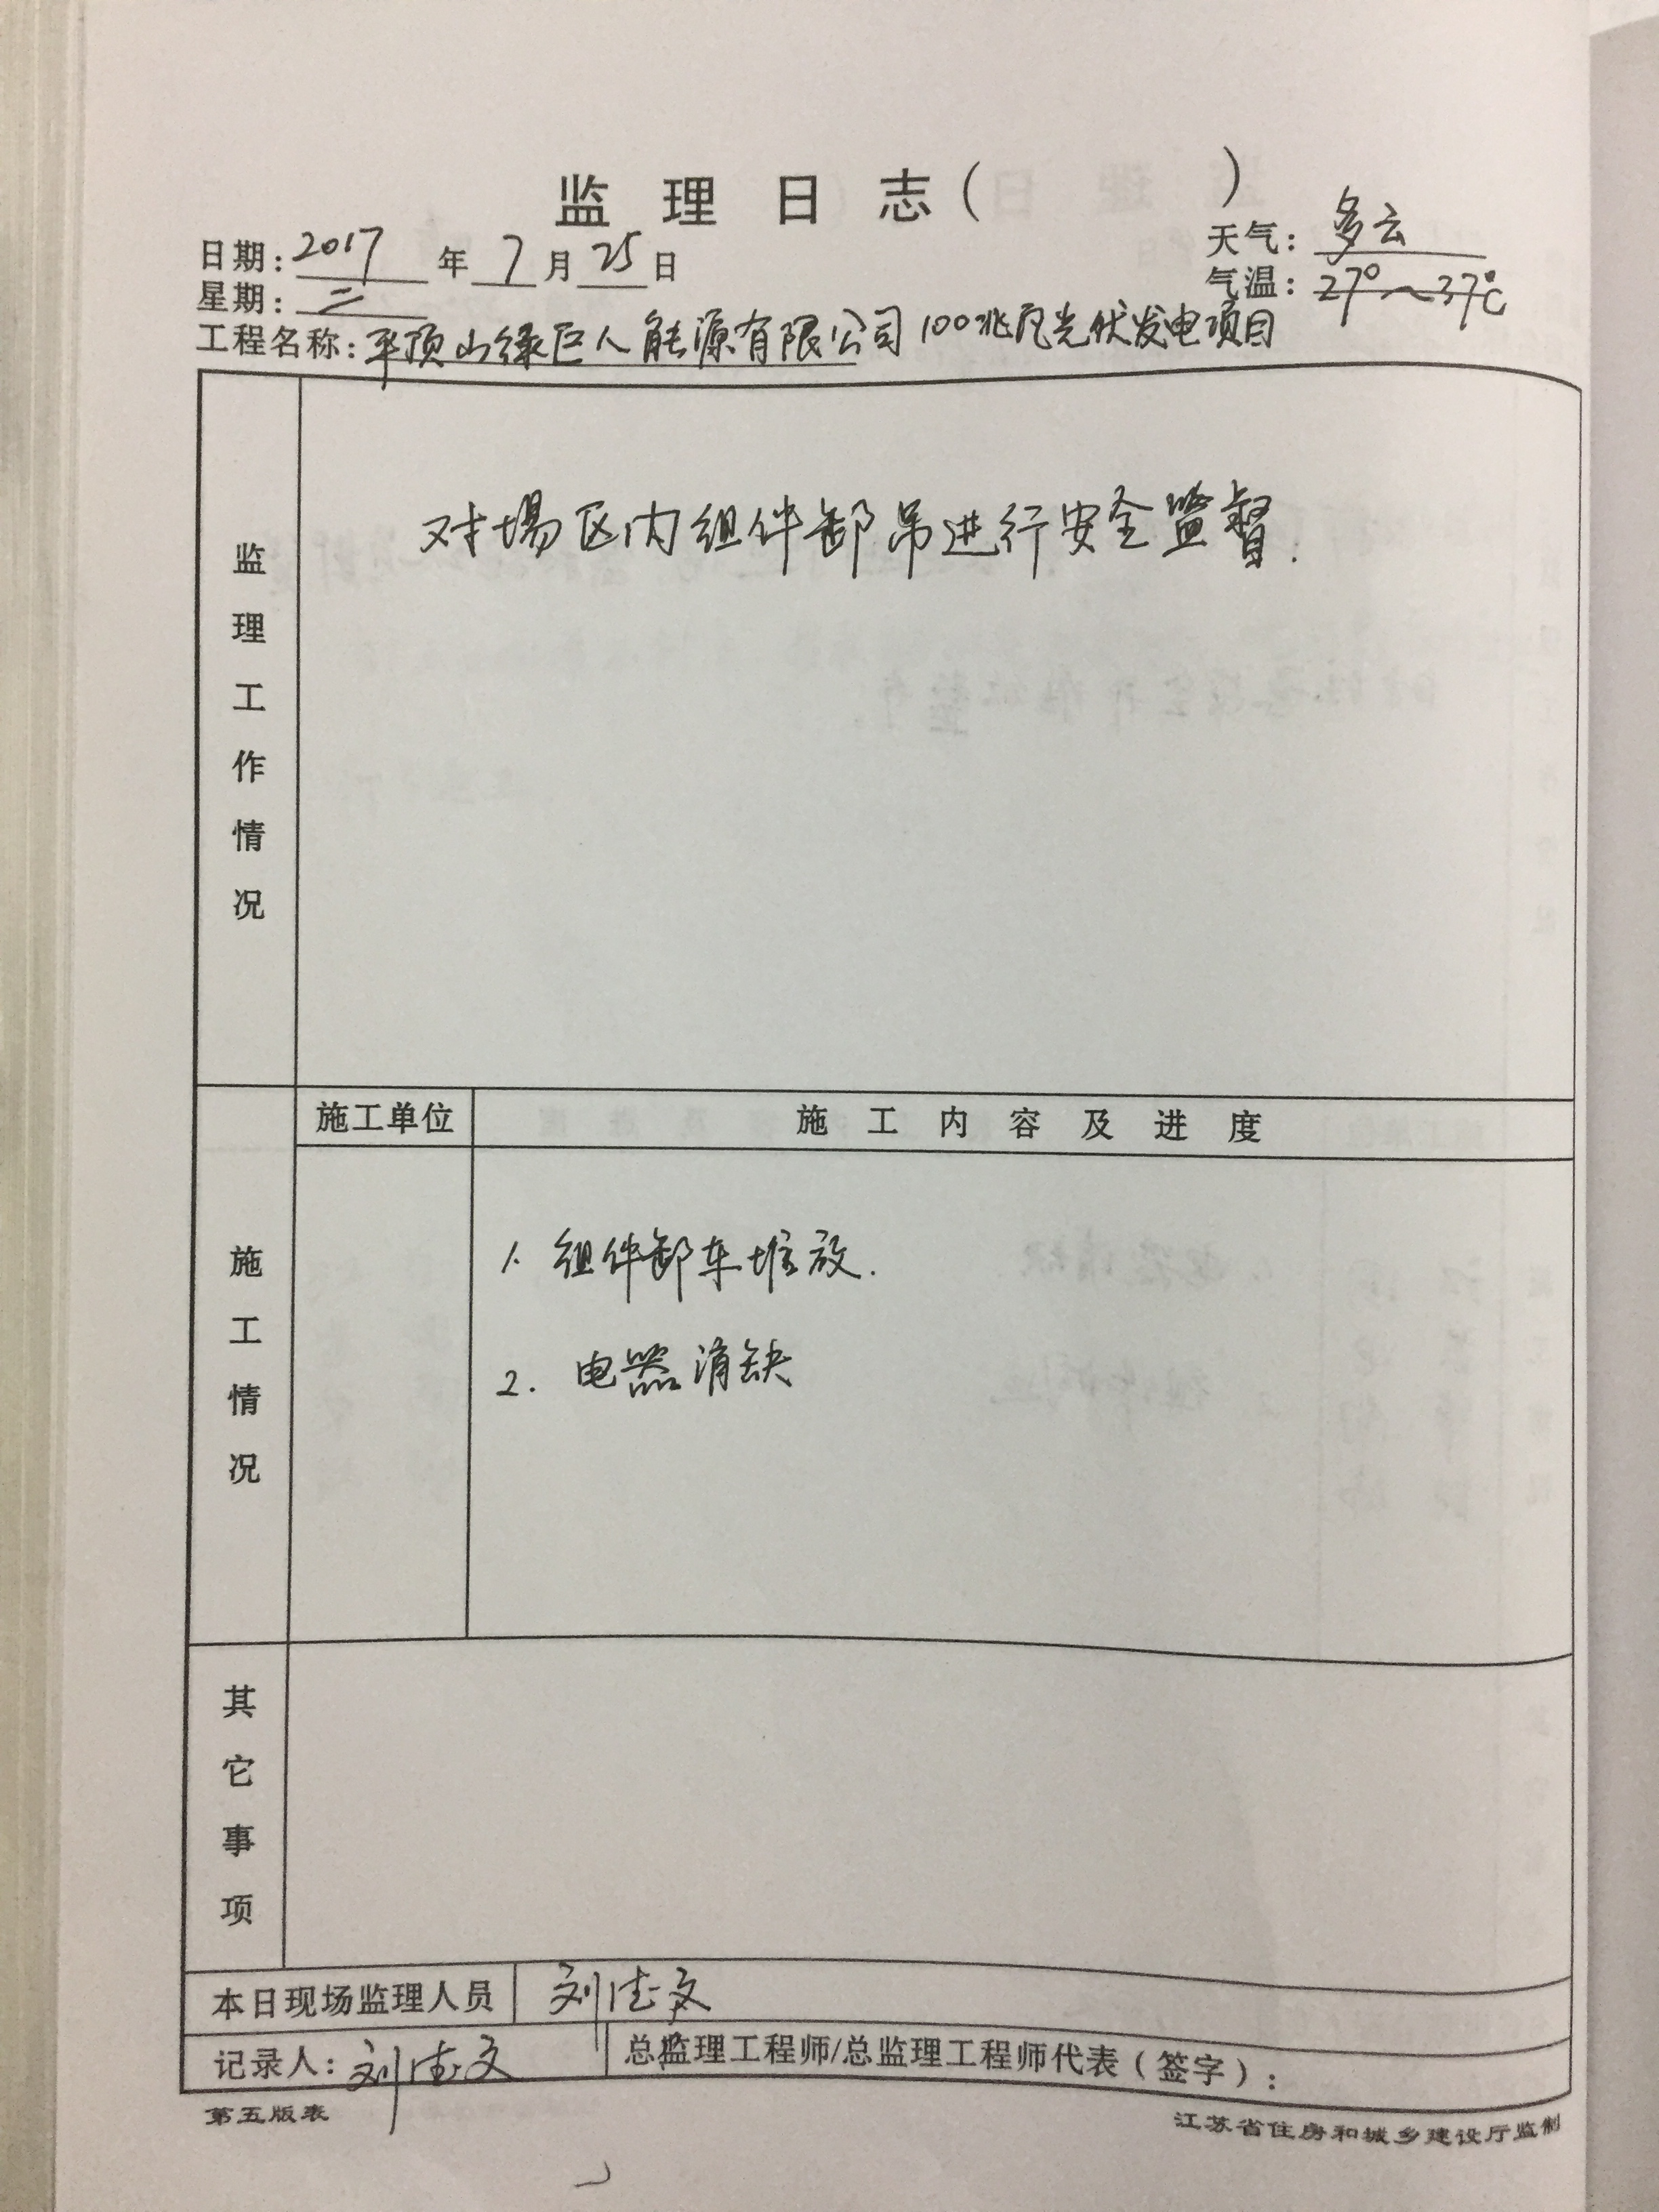 监理日志(  )
日期:2017年7月25日 天气:多云
星期:二 气温:27°~37℃
工程名称:平顶山绿巨人能源有限公司100兆瓦光伏发电项目
监理工作情况
对場区内组件卸吊进行安全监督.
施工单位 施工内容及进度
施工情况
1. 组件卸车堆放.
2. 电器消缺
其它事项
本日现场监理人员 刘佳文
记录人:刘佳文 总监理工程师/总监理工程师代表(签字):
第五版表 江苏省住房和城乡建设厅监制